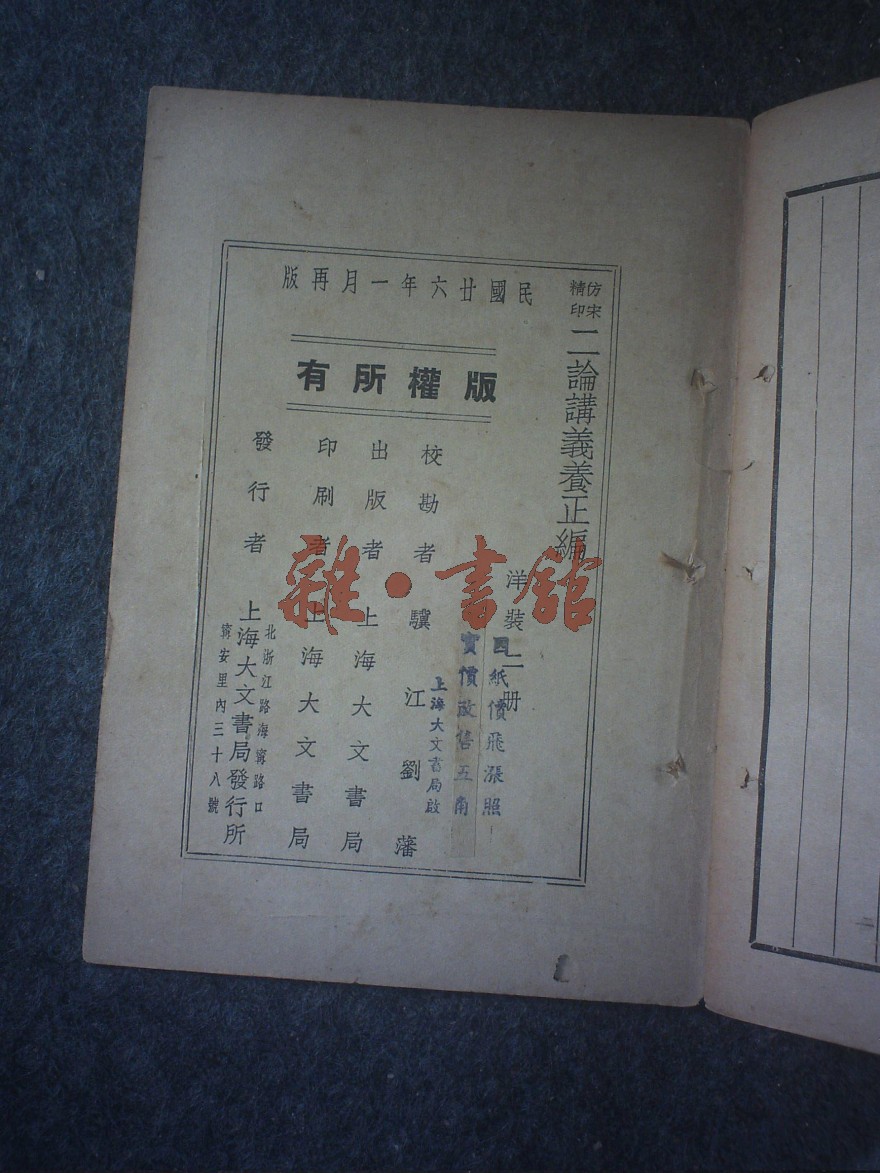 民國廿六年一月再版
仿宋精印
二論講義養正編
洋裝二册
因紙價飛漲照
實價改售五角
上海大文書局啟
版權所有
校勘者 驥江劉藩
出版者 上海大文書局
印刷者 上海大文書局
發行者 上海大文書局發行所
北浙江路海寧路口
寧安里內三十八號
雜·書館